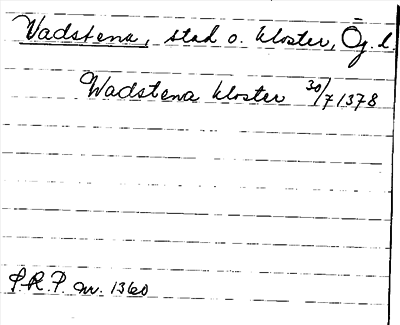 Vadstena, stad o. kloster, Ög. l.
Wadstena kloster 30/7 1378
S.R.P. nr. 1360